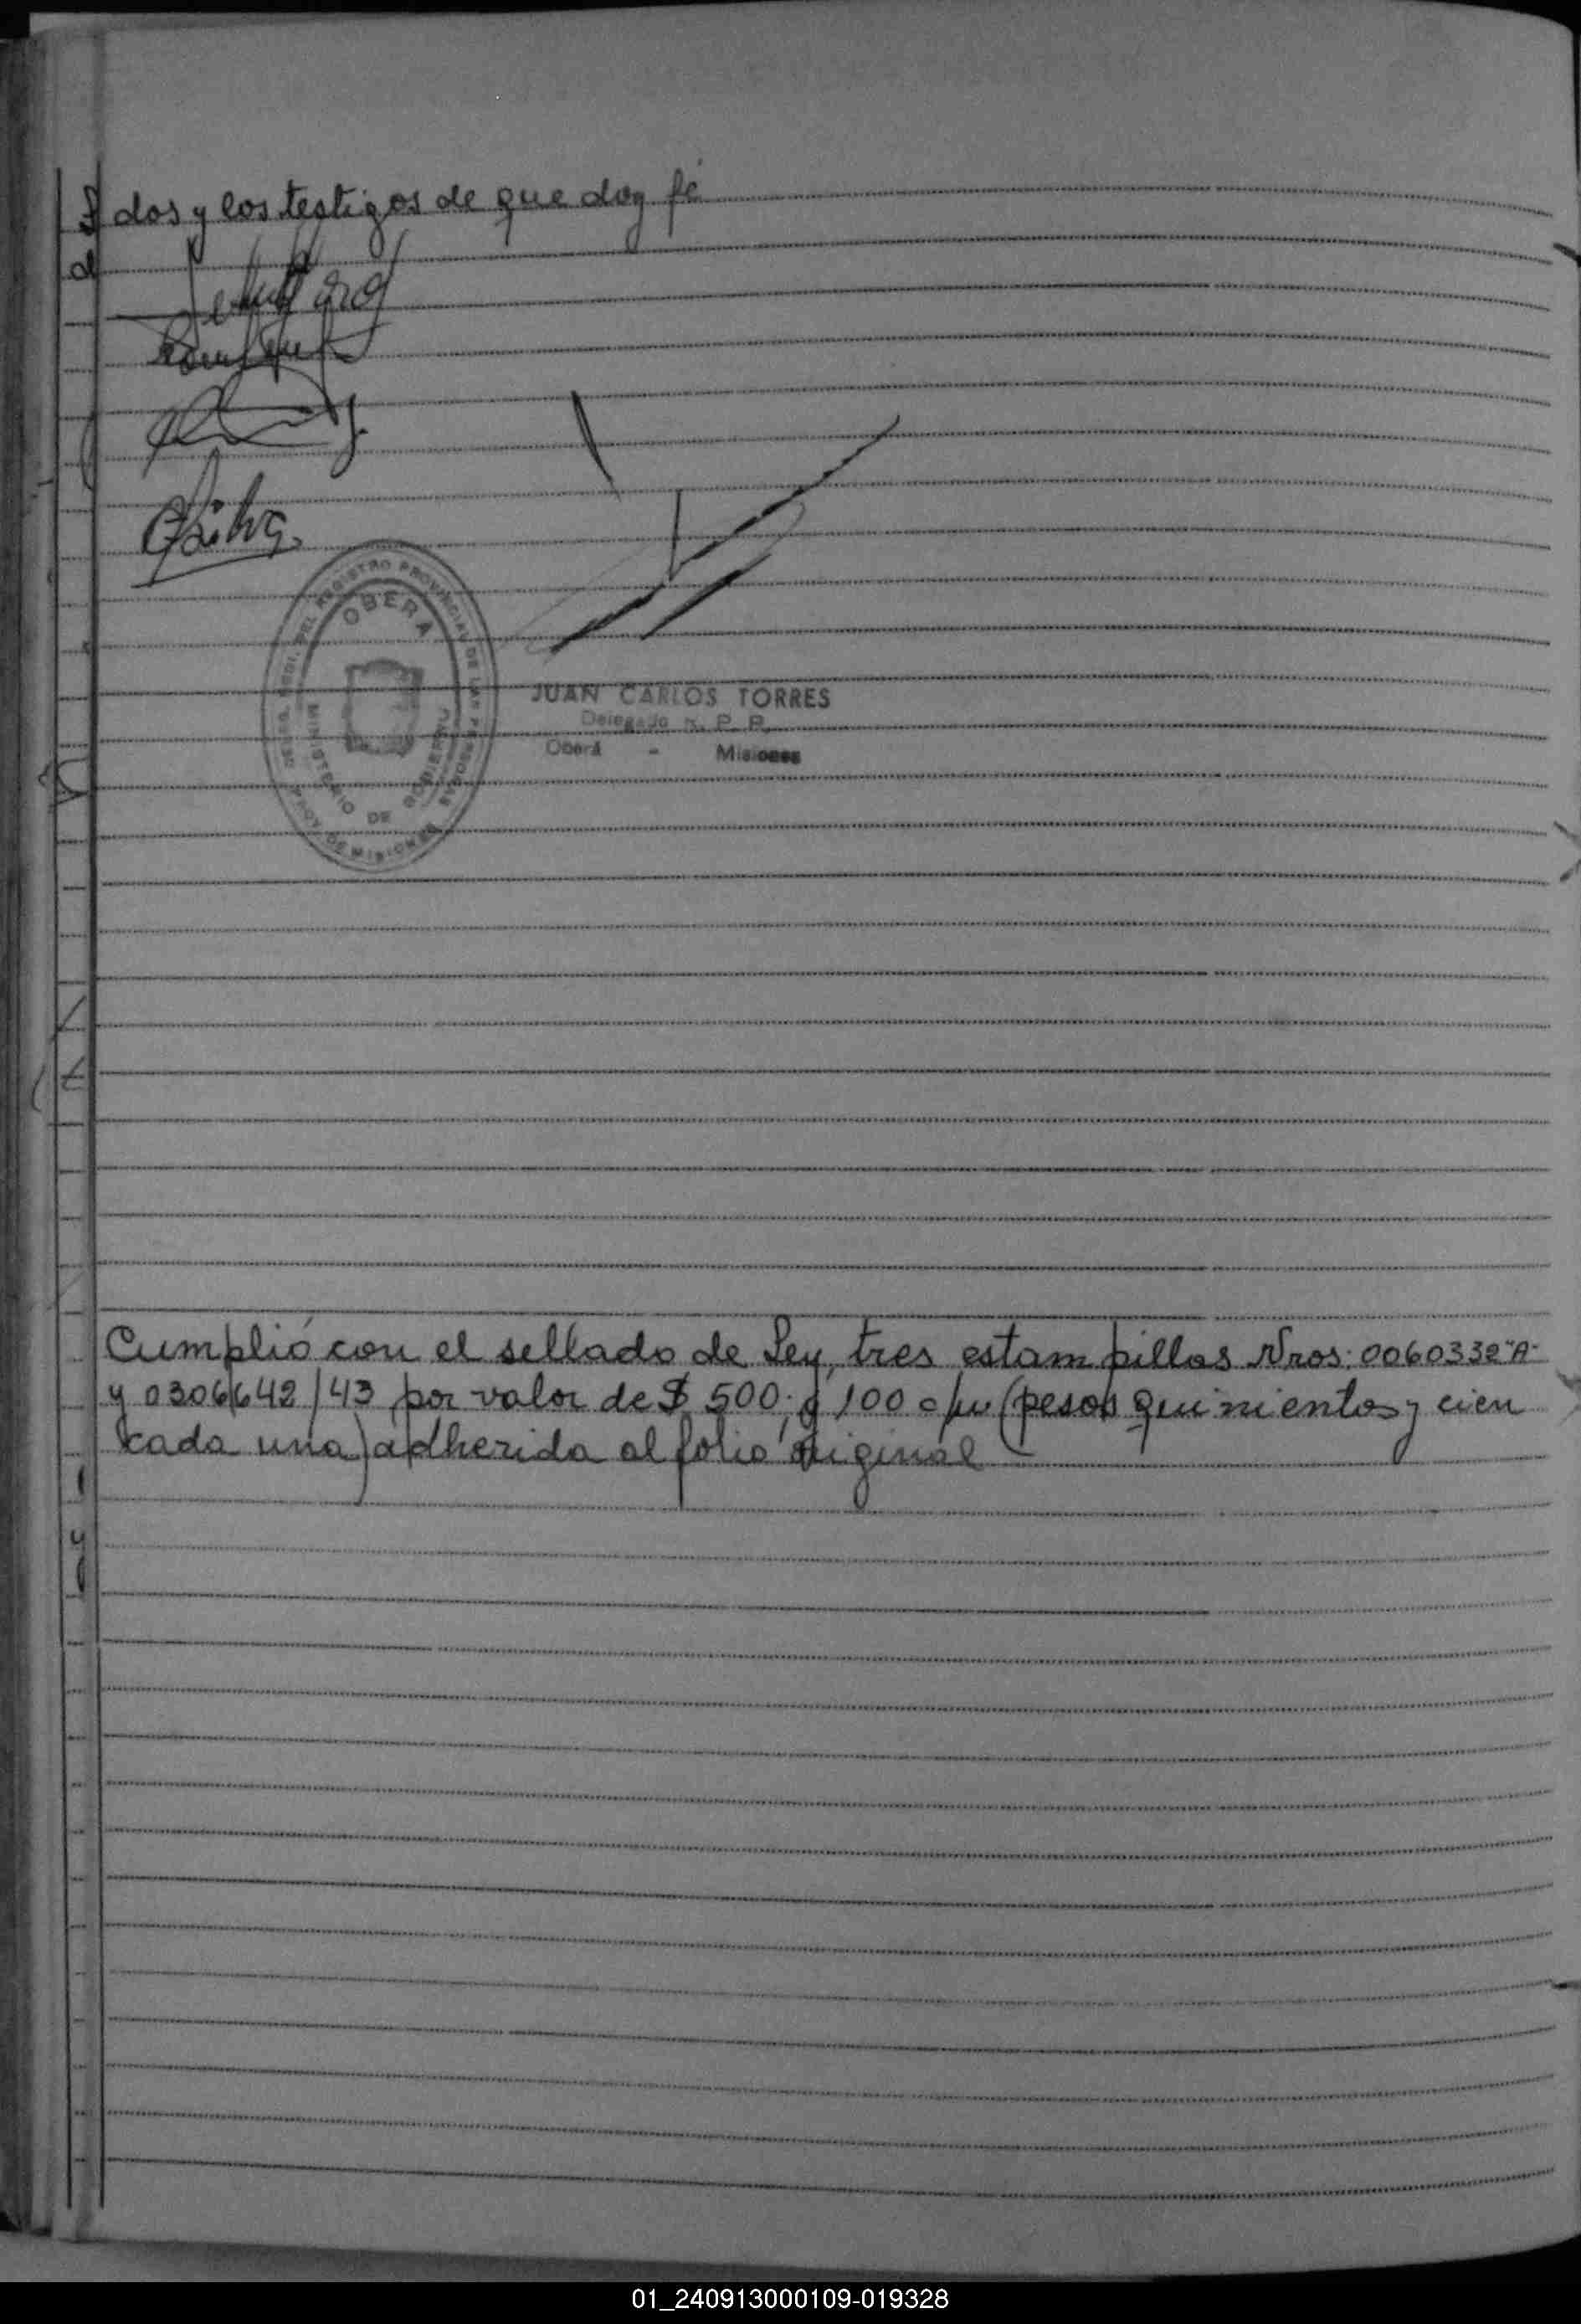 dos y los testigos de que doy fé
OBERA
REGISTRO PROVINCIAL DE LAS PERSONAS
MINISTERIO DE GOBIERNO
PROV. DE MISIONES
JUAN CARLOS TORRES
Delegado R. P. P.
Oberá - Misiones
Cumplió con el sellado de Ley, tres estampillas Nros: 0060332"A"
y 0306642/43 por valor de $ 500; y 100 c/u (pesos quinientos y cien
cada una) adherida al folio original
01_240913000109-019328